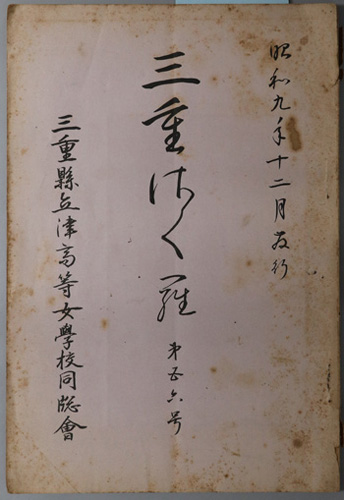 昭和九年十二月発行
三重佐く羅
第五六号
三重縣立津高等女學校同牎會